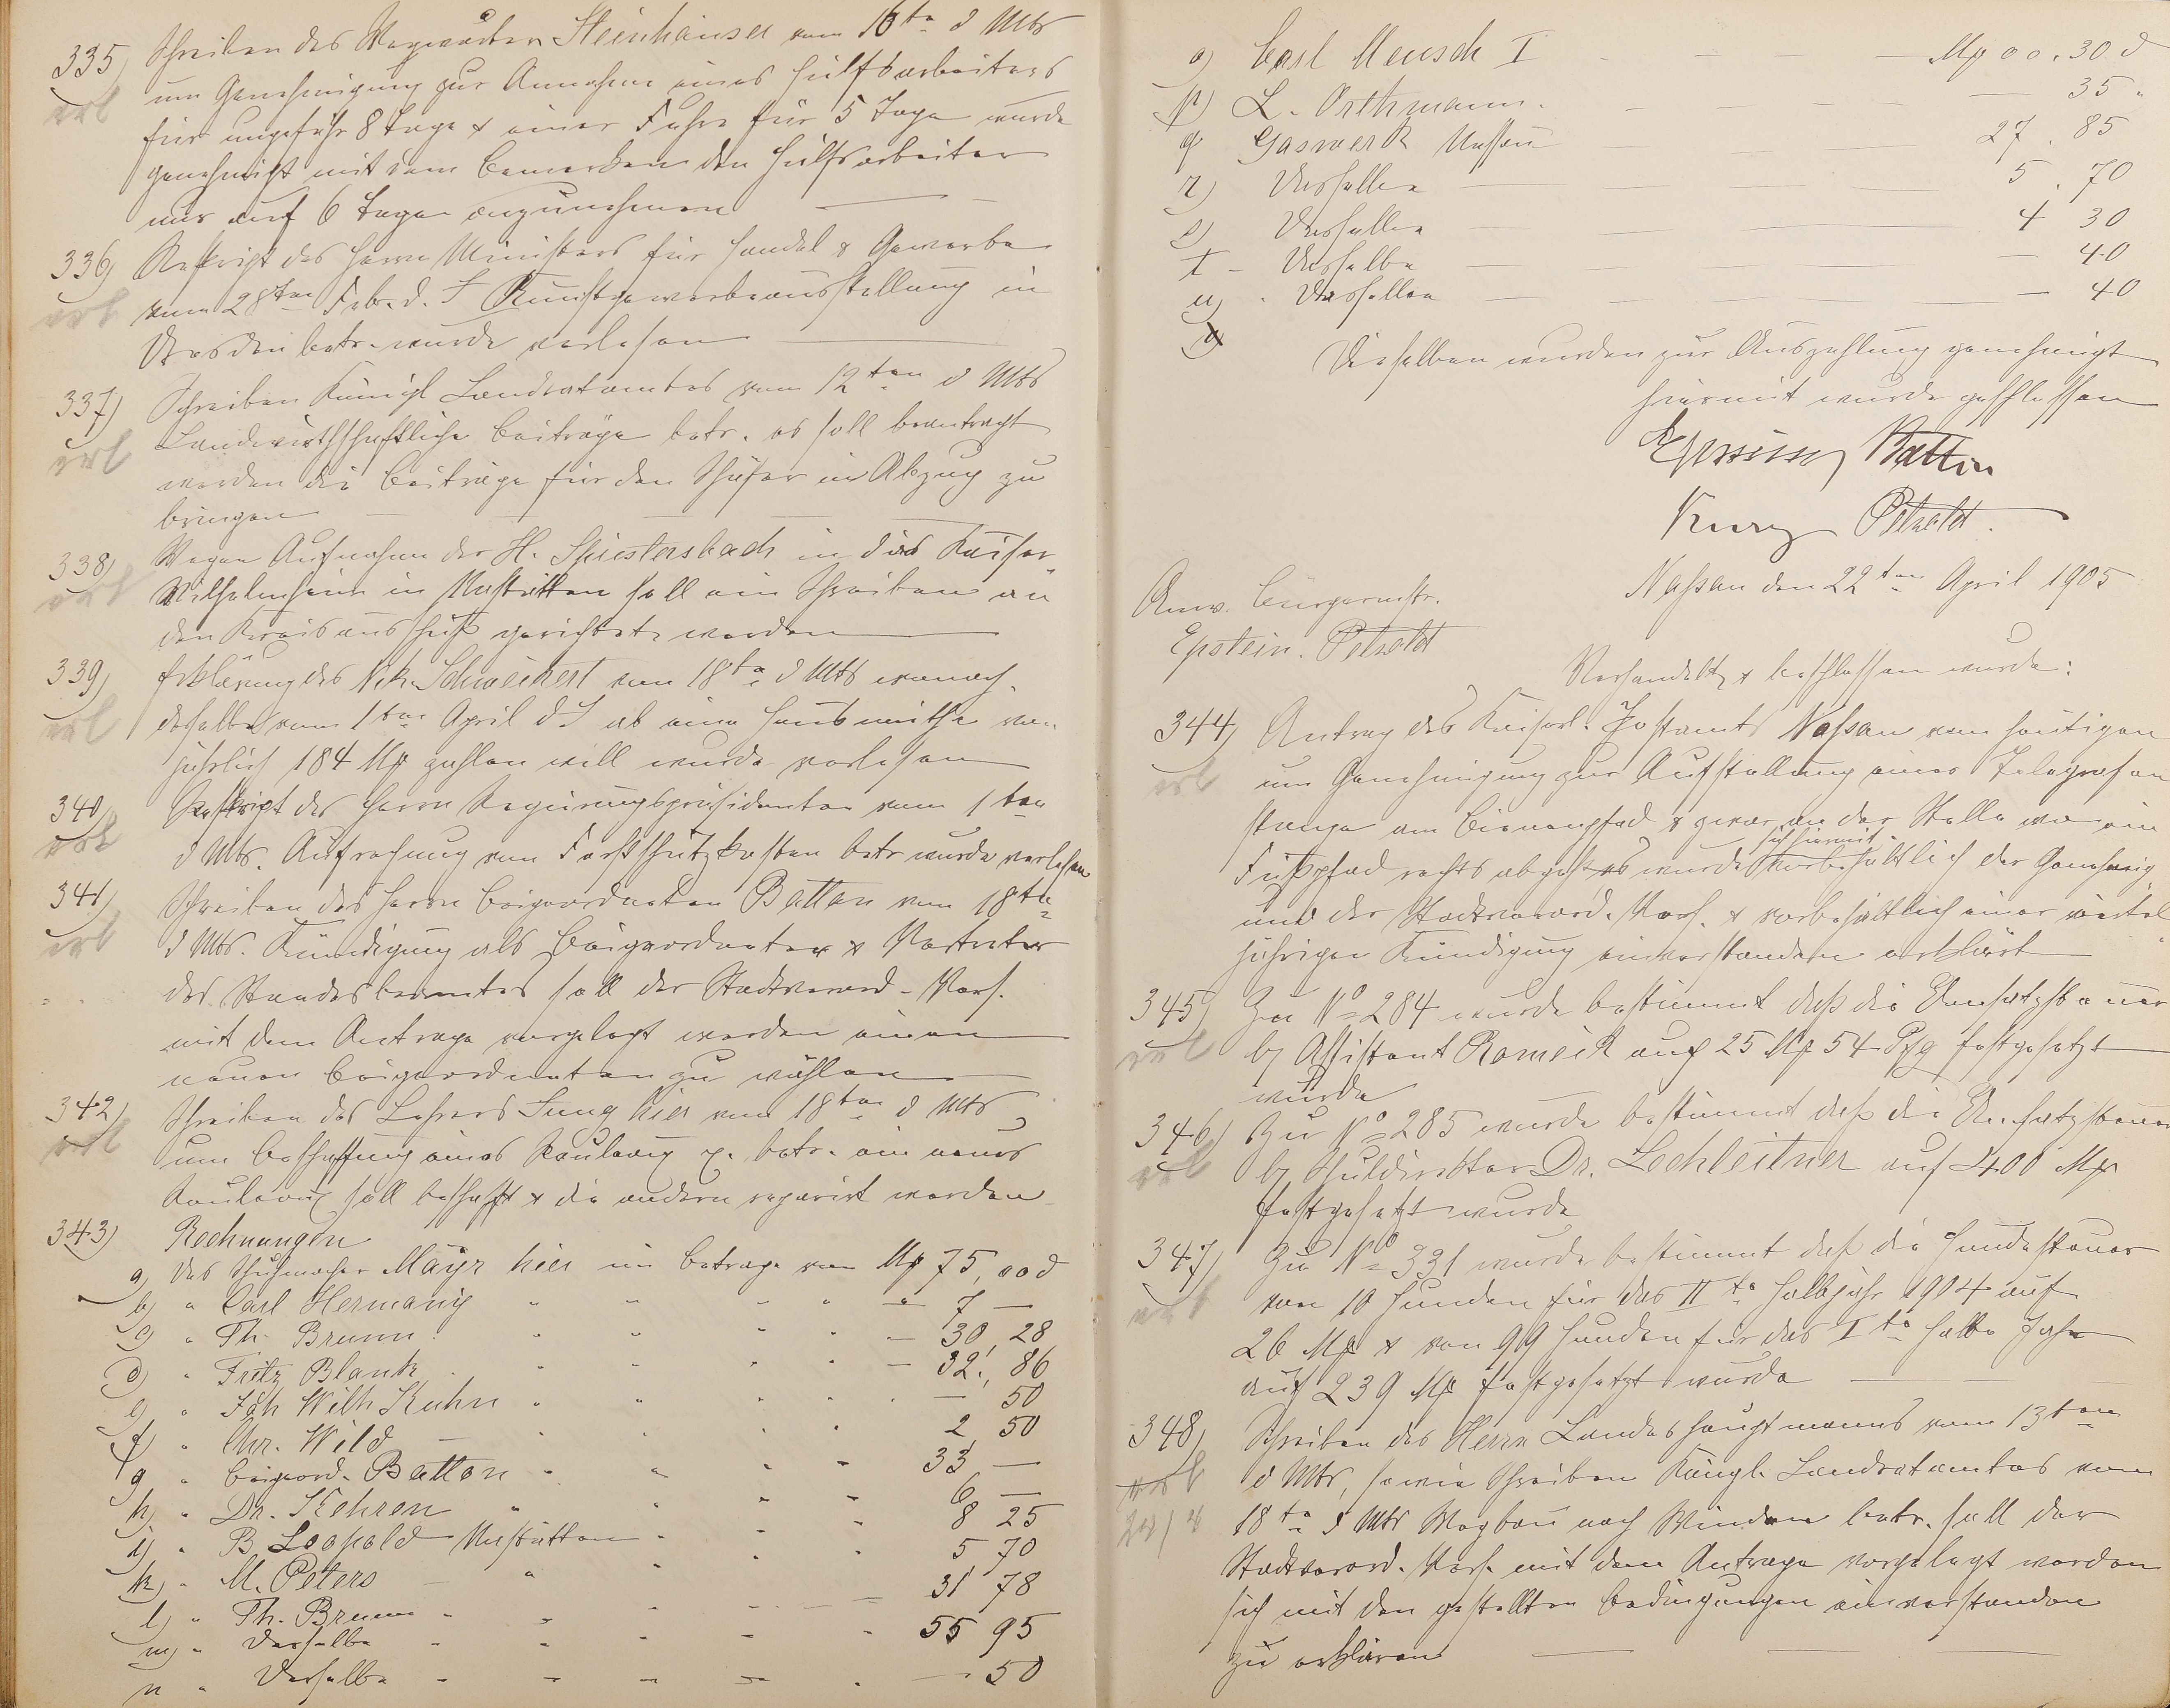 335) Schreiben des Wegewärters Steinhäuser vom 16ten d Mts
erl um Genehmigung zur Annahme eines Hülfsarbeiters
für ungefähr 8 Tage & einer Fuhre für 5 Tage wurde
genehmigt mit dem Bemerken den Hülfsarbeiter
nur auf 6 Tage anzunehmen
336) Reskript des Herrn Ministers für Handel & Gewerbe
erl vom 28ten Febr. d. J Kunstgewerbeausstellung in
Dresden betr. wurde verlesen
337) Schreiben Königl Landratamtes vom 12ten d Mts
erl Landwirthschaftliche Beiträge betr. es soll beantragt
werden die Beiträge für den Schäfer in Abzug zu
bringen
338) Wegen Aufnahme der H. Spiestersbach in das Kaiser
erl Wilhelmheim in Nastätten soll ein Schreiben an
den Kreisausschuß gerichtet werden
339) Erklärung des Nik. Schweikert vom 18ten d Mts wonach
erl derselbe vom 1ten April d J ab eine Hausmiethe von
jährlich 184 Mk zahlen will wurde verlesen
340) Reskript des Herrn Regierungspräsidenten vom 1ten
erl d Mts. Aufrechnung von Forstschutzkosten betr wurde verlesen
341) Schreiben des Herrn Beigeordneten Batton vom 18ten
erl d Mts. Kündigung als Beigeordneter & Vertreter
des Standesbeamten soll der Stadtverord-Vers.
mit dem Antrage vorgelegt werden einen
neuen Beigeordneten zu wählen
342) Schreiben des Lehrers Jung hier vom 18ten d Mts
erl um Beschaffung eines Rouleaux p. betr. ein neues
Rouleaux soll beschafft & die andern reparirt werden
343) Rechnungen
a) des Schuhmacher Mayr hier im Betrage von Mk 75,00 d
b) " Carl Hermany " " " " " 7 —
c) " Th. Brunn " " " " — 30, 28
d) " Fritz Blank " " " " — 32., 86
e) " Joh Wilh Kuhn " " " " — 50
f) " Chr. Wild — " " " " 2 50
g " Beigeord. Batton " " " " 33 —
h) " Dr. Kehren " " " " 6 —
i) " B Leopold Nastätten " " " 8 25
k) " M. Peters — " " " " 5, 70
l) " Th. Brunn " " " " — 31 78
m) " Derselbe " " " " " 55 95
n " Derselbe " " " " " — 50
o) Carl Meusch I — — — Mk 00.30 d
p) L. Orthmann. — — — — 35 "
q Gaswerk Nassau — 27. 85
r) Dasselbe — 5. 70
s) Dasselbe — 4 30
t – Dasselbe — 40
u) . Dasselbe — 40
v)
Dieselben wurden zur Auszahlung genehmigt
hiermit wurde geschlossen
Batton
Kurz Petzoldt.
Nassau den 22ten April 1905
Anw. Bürgermstr.
Epstein. Petzoldt
Verhandelt & beschlossen wurde:
344) Antrag des Kaiserl. Postamts Nassau vom heutigen
erl um Genehmigung zur Aufstellung einer Telegrafen
stange am Bienenpfad & zwar an der Stelle wo ein
sich hiermit
Fußpfad rechts abgeht es wurde vorbehältlich der Genehmig
und der Stadtverord. Vers. & vorbehältlich einer viertel
jährigen Kündigung einverstanden erklärt
345) Zu No 284 wurde bestimmt daß die Umsatzsteuer
erl bz Assistent Romeik auf 25 Mk 54 Pfg festgesetzt
wurde
346) Zu No 285 wurde bestimmt daß die Umsatzsteuer
erl bz Schuldirektor Dr. Lechleitner auf 400 Mk
festgesetzt wurde
347) Zu No 331 wurde bestimmt daß die Hundesteuer
erl von 10 Hunden für das IIte Halbjahr 1904 auf
26 Mk & von 99 Hunden für das Ite halbe Jahr
auf 239 Mk festgesetzt wurde
348) Schreiben des Herrn Landeshauptmanns vom 13ten
erl d Mts, sowie Schreiben Königl. Landratamtes vom
18ten d Mts Wegbau nach Winden betr. soll der
Stadtverord. Vers. mit dem Antrage vorgelegt werden
sich mit den gestellten Bedingungen einverstanden
zu erklären